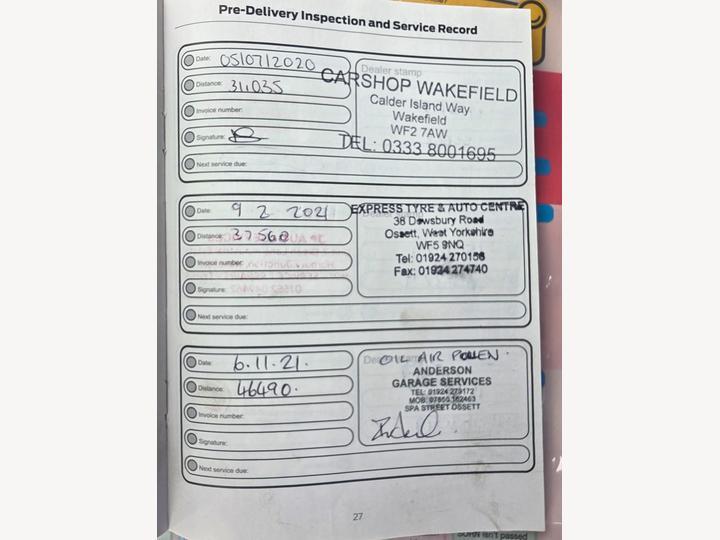 Pre-Delivery Inspection and Service Record
Date: 05/07/2020
Distance: 311035
Invoice number:
Signature:
Next service due:
Dealer stamp
CARSHOP WAKEFIELD
Calder Island Way
Wakefield
WF2 7AW
TEL: 0333 8001695
Date: 9 2 2021
Distance: 37560
Invoice number:
Signature:
Next service due:
EXPRESS TYRE & AUTO CENTRE
38 Dewsbury Road
Ossett, West Yorkshire
WF5 9NQ
Tel: 01924 270156
Fax: 01924 274740
Date: 6.11.21.
Distance: 46490.
Invoice number:
Signature:
Next service due:
OIL AIR POLLEN.
ANDERSON
GARAGE SERVICES
TEL: 01924 279172
SPA STREET OSSETT
27
SORN isn't passed